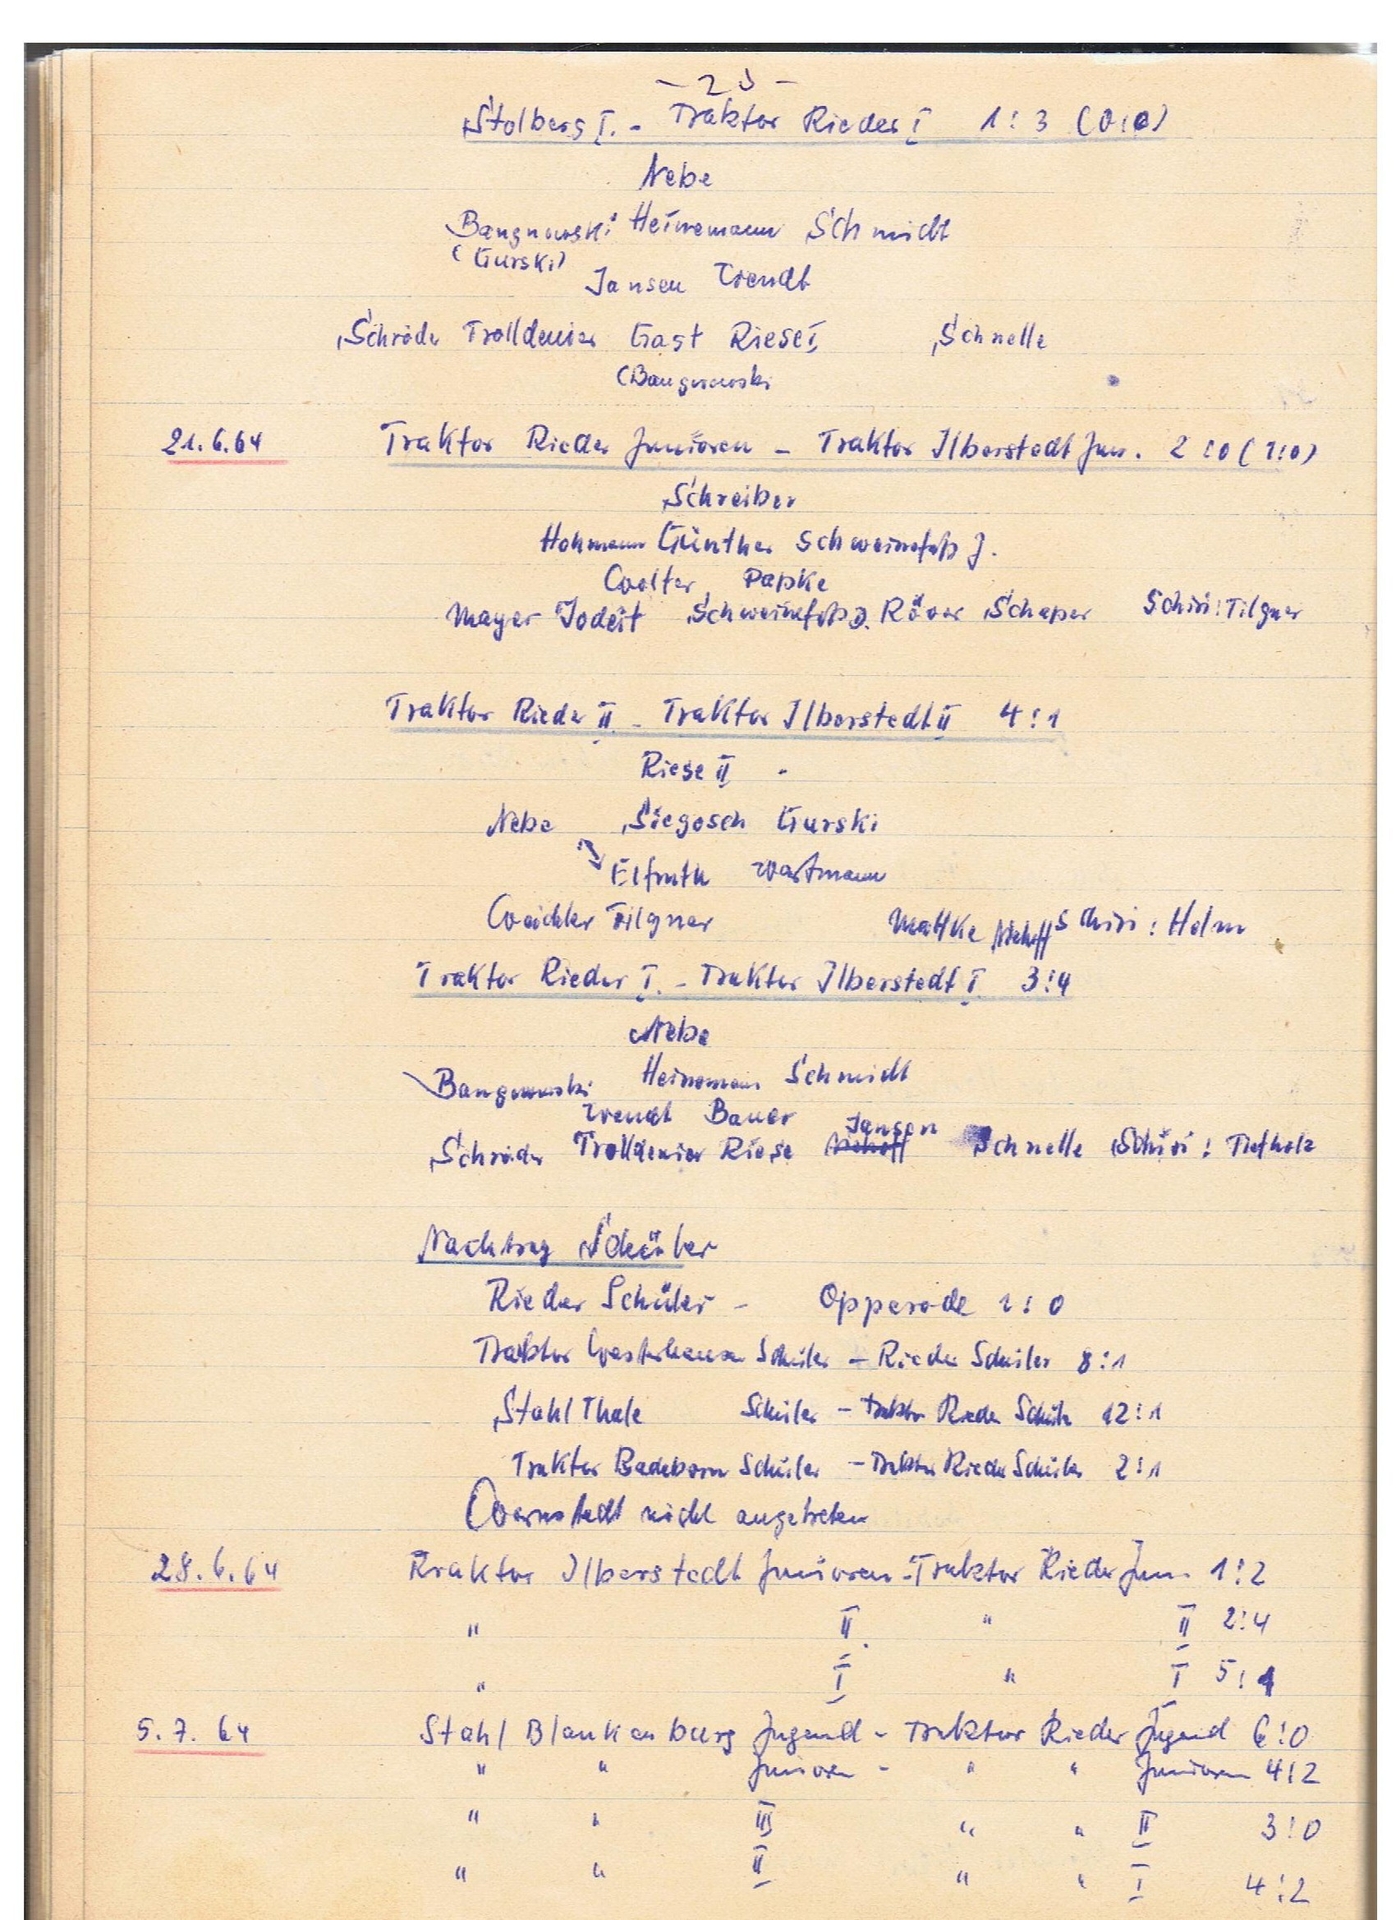 - 23 -
Stolberg I. - Traktor Rieder I 1:3 (0:0)
Nebe
Bangnowski Heinemann Schmidt
(Gurski)
Jansen Wendt
Schröder Trolldenier Gast Riese I Schnelle
(Bangnowski
21.6.64 Traktor Rieder Junioren - Traktor Ilberstedt Jun. 2:0 (1:0)
Schreiber
Hohmann Günther Schweinefuß J.
Papke
Mayer Jodeit Schweinefuß D. Röver Schaper Schiri: Tilgner
Traktor Rieder II - Traktor Ilberstedt II 4:1
Riese II
Nebe Siegosch Gurski
Elfruth Wartmann
Weichler Tilgner Mattke Niehoff Schiri: Holm
Traktor Rieder I. - Traktor Ilberstedt I 3:4
Nebe
Bangnowski Heinemann Schmidt
Wendt Bauer
Jansen
Schröder Trolldenier Riese Niehoff Schnelle Schiri: Tiefholz
Nachtrag Schüler
Rieder Schüler - Opperode 1:0
Traktor Westerhausen Schüler - Rieder Schüler 8:1
Stahl Thale Schüler - Traktor Rieder Schüler 12:1
Traktor Badeborn Schüler - Traktor Rieder Schüler 2:1
Wernstedt nicht angetreten
28.6.64 Traktor Ilberstedt Junioren - Traktor Rieder Jun. 1:2
" II. " II 2:4
" I " I 5:1
5.7.64 Stahl Blankenburg Jugend - Traktor Rieder Jugend 6:0
" " Junioren - " " Junioren 4:2
" " III " " II 3:0
" " II " " I 4:2